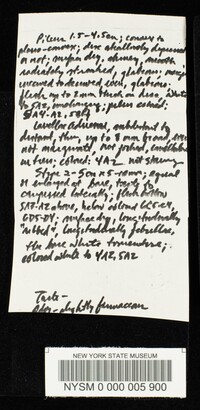 Pileus 1.5-4.5cm; convex to
plano-convex; disc shallowly depressed
or not; surface dry, smooth
radially streaked, glabrous; margin
incurved to decurved, even, glabrous;
flesh up to 2 mm thick on disc, white
to 5A2, unchanging;
5A4-A2, 5B4
Lamellae adnexed, subdistant to
distant, up to 8 mm broad, even
not marginate, not forked,
colored: 4A2 not staining
Stipe 2-5cm x 5-10mm; equal
or enlarged at base,
5A3-A2 above, below colored 6C5-C4,
6D5-D4; surface dry, longitudinally
"ribbed", longitudinally fibrillose,
the base white tomentose;
colored white to 4A2, 5A2
Taste-
Odor- slightly farinaceous
NEW YORK STATE MUSEUM
NYSM 0 000 005 900